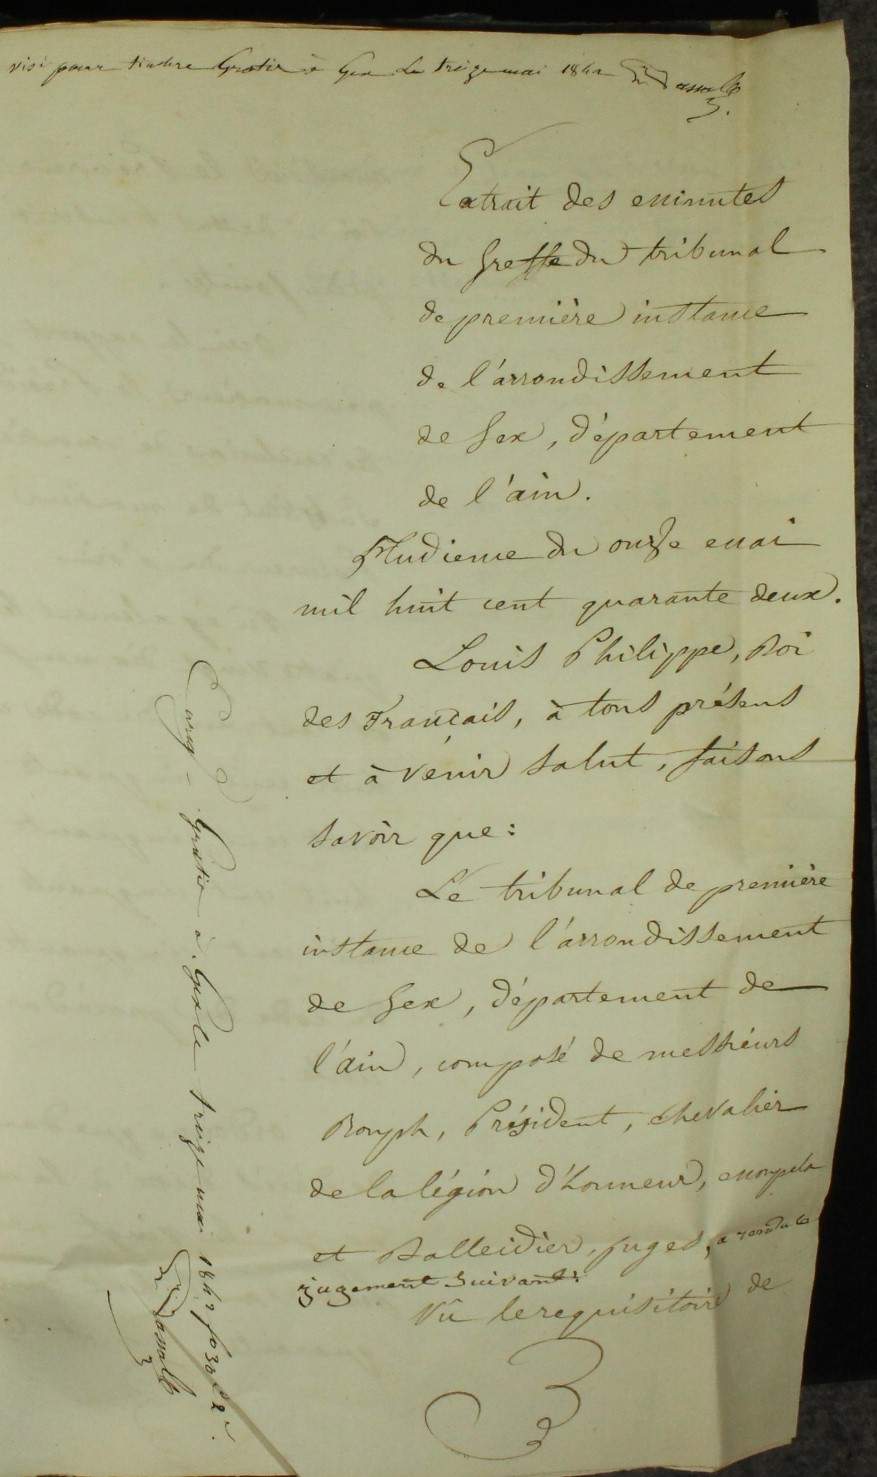 visé pour timbre Gratis à Gex Le treize mai 1842
Extrait des minutes
du Greffe du tribunal
de première instance
de l'arrondissement
de Gex, département
de l'ain.
Audience du onze mai
mil huit cent quarante deux.
Louis Philippe, Roi
des Français, à tous présens
et à vénir salut, faisons
savoir que:
Le tribunal de première
instance de l'arrondissement
de Gex, département de
l'ain, composé de messieurs
Rouph, Président, chevalier
de la légion d'honneur,
et Balleidier, juges, a rendu le
jugement suivant:
Vû le requisitoire de
Enreg. Gratis à Gex le treize mai 1842 fo 30